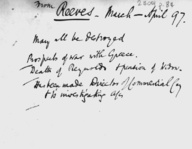 from Reeves – March – April 97.
May all be destroyed
Prospects of war with Greece.
Death of Reynolds & pension of widow.
His being made Director of Commercial Coy
& his investigating